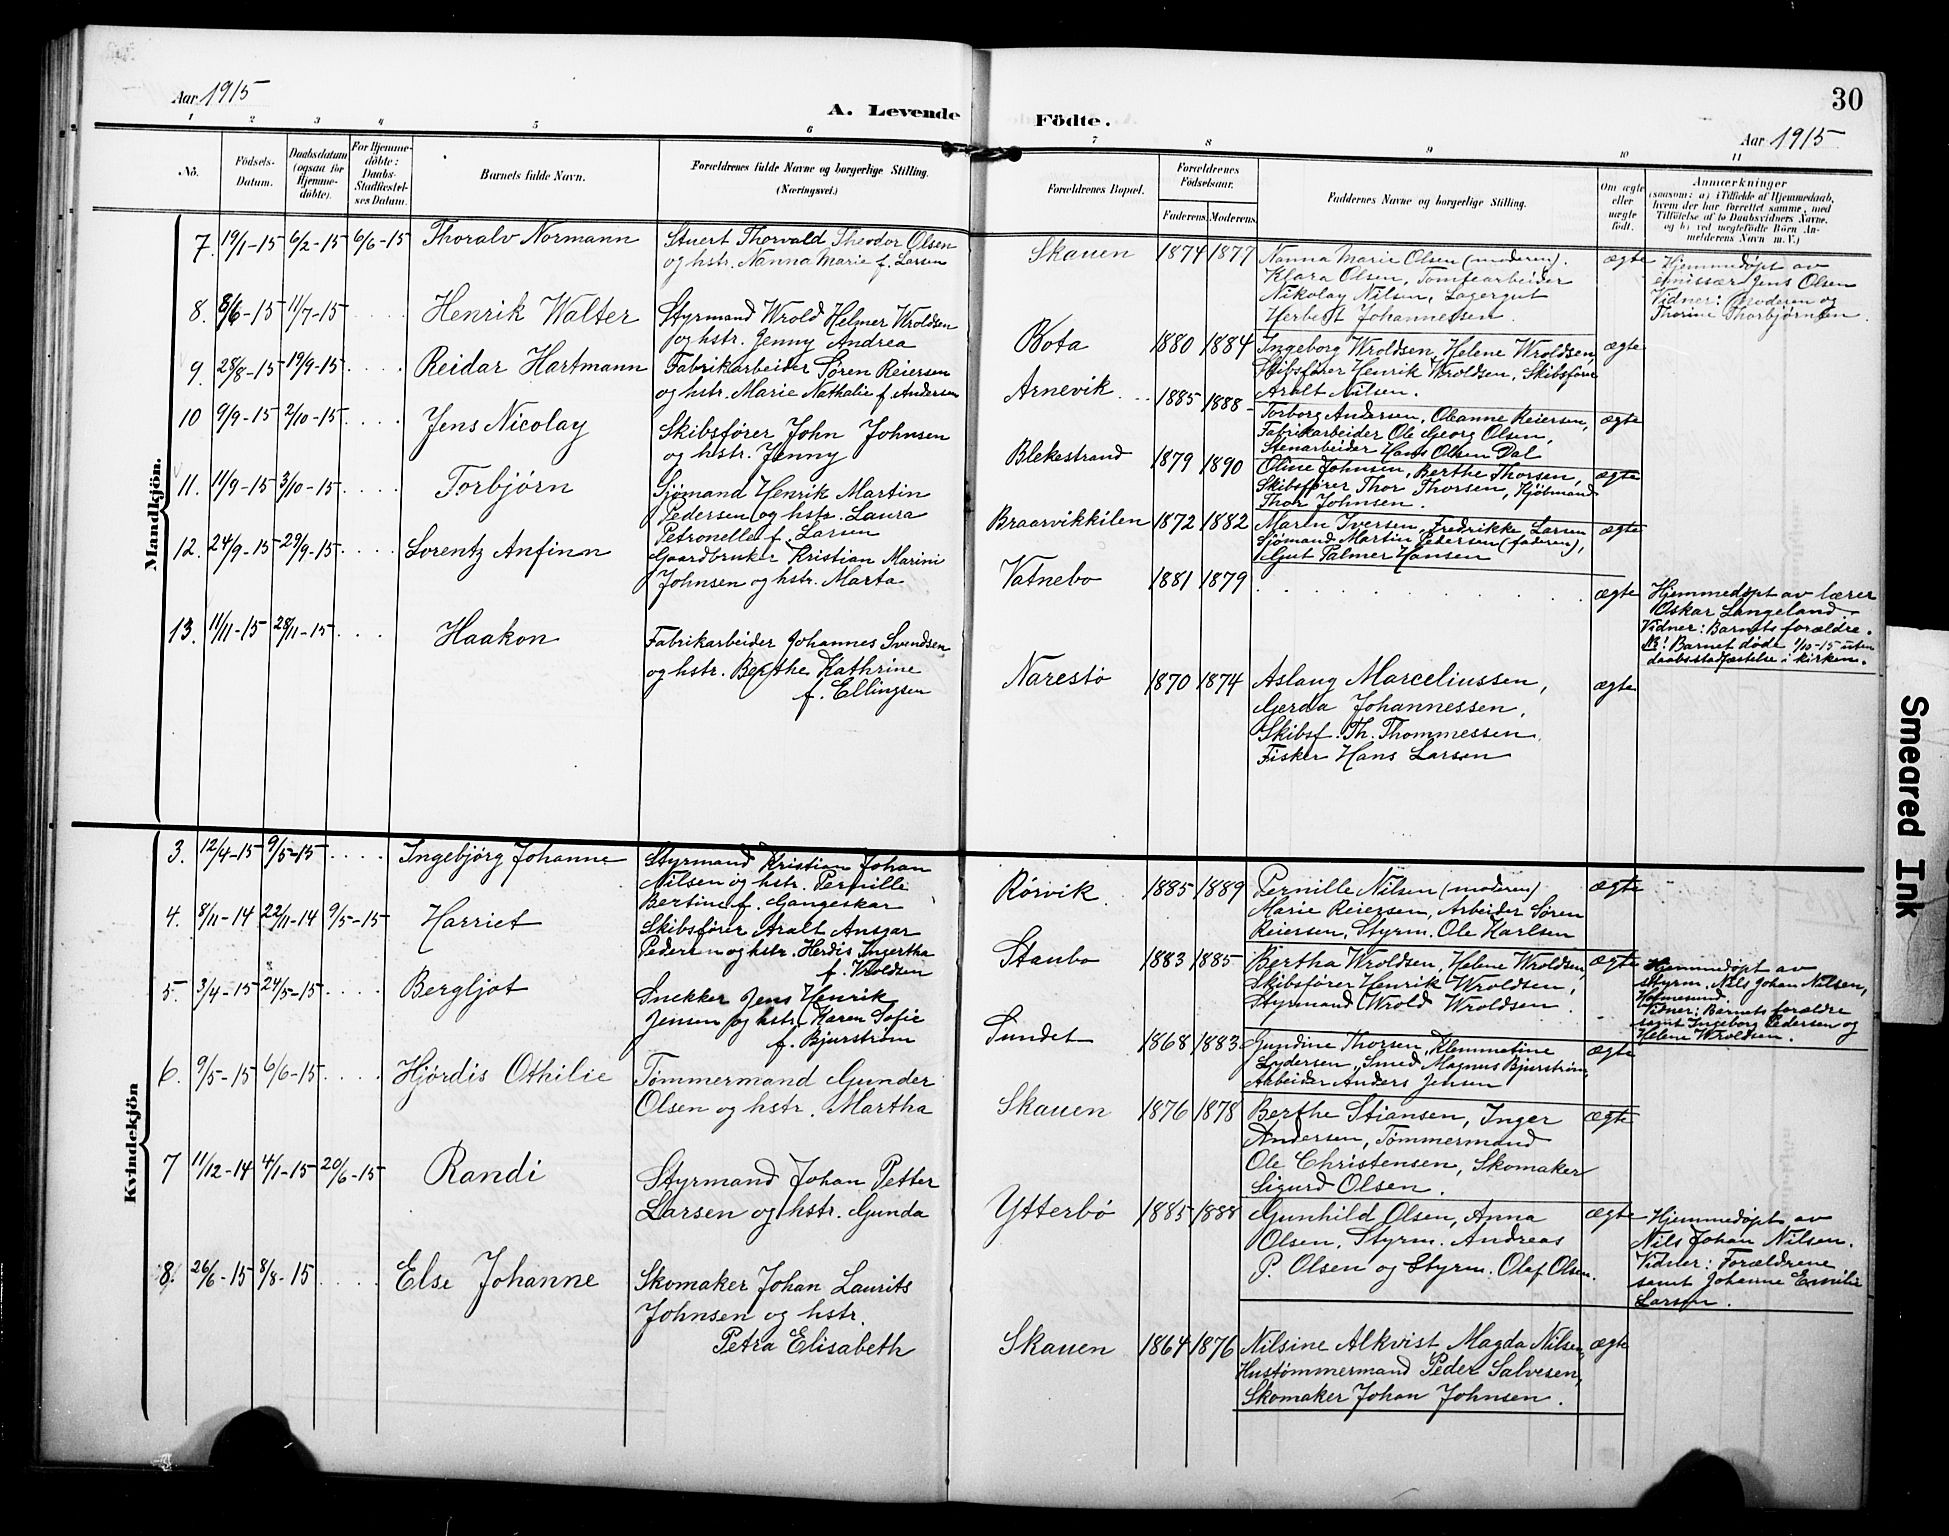 30
Aar 1915
A. Levende Födte.
Aar 1915
1 2 3 4 5 6 7 8 9 10 11
No.
Födsels-Datum.
Daabsdatum (ogsaa for Hjemme-döbte).
For Hjemme-döbte: Daabs-Stadfæstel-ses Datum.
Barnets fulde Navn.
Forældrenes fulde Navne og borgerlige Stilling. (Næringsvei.)
Forældrenes Bopæl.
Forældrenes Födselsaar.
Faderens. Moderens.
Faddernes Navne og borgerlige Stilling.
Om ægte eller uægte födt.
Anmærkninger
(saasom: a) i Tilfælde af Hjemmedaab, hvem der har forrettet samme, med Tilföielse af to Daabsvidners Navne, og b) ved uægtefödte Börn Anmelderens Navn m. V.)
Mandkjön.
7. 19/1-15 6/2-15 6/6-15 Thoralv Normann
Stuert Thorvald Theodor Olsen
og hstr. Nanna Marie f. Larsen
Skauen 1874 1877
Nanna Marie Olsen (moderen).
Klara Olsen, Tomtearbeider
Nikolay Nilsen, Lagergut
Herbert Johannessen.
ægte
Hjemmedøpt av
emissær Jens Olsen
Vidner: Moderen og
Thorine Thorbjørnsen.
8. 8/6-15 11/7-15 .... Henrik Walter
Styrmand Wrold Helmer Wroldsen
og hstr. Jenny Andrea
Bota 1880 1884
Ingeborg Wroldsen, Helene Wroldsen
Skibsfører Henrik Wroldsen, Skibsfører
Aralt Nilsen.
ægte
9. 28/8-15 19/9-15 .... Reidar Hartmann
Fabrikarbeider Søren Reiersen
og hstr. Marie Nathalie f. Andersen
Arnevik 1885 1888
Torborg Andersen, Oleanne Reiersen,
Fabrikarbeider Ole Georg Olsen,
Stenarbeider Hans Olsen Dal
ægte
10 9/9-15 2/10-15 .... Jens Nicolay
Skibsfører John Johnsen
og hstr. Jenny
Blekestrand 1879 1890
Oline Johnsen, Berthe Thorsen,
Skibsfører Thor Thorsen, Kjøbmand
Thor Johnsen.
ægte
11. 11/9-15 3/10-15 .... Torbjørn
Sjømand Henrik Martin
Pedersen og hstr. Laura
Petronelle f. Larsen
Braarvikkilen 1872 1882
Maren Iversen, Fredrikke Larsen
Sjømand Martin Pedersen (faderen),
Gut Palmer Hansen
ægte
12. 24/9-15 29/9-15 .... Lorentz Anfinn
Gaardbruker Kristian Marini
Johnsen og hstr. Marta
Vatnebo 1881 1879
ægte
Hjemmedøpt av lærer
Oskar Langeland.
Vidner: Barnets forældre.
NB! Barnet døde 1/10-15 uten
daabsstadfæstelse i kirken.
13. 11/11-15 28/11-15 .... Haakon
Fabrikarbeider Johannes Svendsen
og hstr. Berthe Kathrine
f. Ellingsen
Narestø 1870 1874
Aslaug Marceliussen,
Gerda Johannessen,
Skibsf. Th. Thommessen.
Fisker Hans Larsen
ægte
Kvindekjön
3. 12/4-15 9/5-15 .... Ingebjørg Johanne
Styrmand Kristian Johan
Nilsen og hstr. Pernille
Bertine f. Gangeskar
Rørvik 1885 1889
Pernille Nilsen (moderen)
Marie Reiersen, Arbeider Søren
Reiersen, Styrm. Ole Karlsen
ægte
4. 8/11-14 22/11-14 9/5-15 Harriet
Skibsfører Aralt Ansgar
Pedersen og hstr. Herdis Ingertha
f. Wroldsen
Staubo 1883 1885
Bertha Wroldsen, Helene Wroldsen,
Skibsfører Henrik Wroldsen,
Styrmand Wrold Wroldsen.
ægte
Hjemmedøpt av
styrm. Nils Johan Nilsen,
Holmesund.
Vidner: Barnets forældre
samt Ingeborg Pedersen og
Helene Wroldsen.
5. 3/4-15 24/5-15 .... Bergljot
Snekker Jens Henrik
Jensen og hstr. Karen Sofie
f. Bjurstrøm
Sundet 1868 1883
Gundine Thorsen, Klemmetine
Lydersen, Smed Magnus Bjurstrøm,
Arbeider Anders Jensen
ægte
6. 9/5-15 6/6-15 .... Hjørdis Othilie
Tømmermand Gunder
Olsen og hstr. Martha
Skauen 1876 1878
Berthe Stiansen, Inger
Andersen, Tømmermand
Ole Christensen, Skomaker
Sigurd Olsen.
ægte
7 11/12-14 4/1-15 20/6-15 Randi
Styrmand Johan Petter
Larsen og hstr. Gunda
Ytterbø 1885 1888
Gunhild Olsen, Anna
Olsen, Styrm. Andreas
P. Olsen og Styrm. Olaf Olsen.
ægte
Hjemmedøpt av
Nils Johan Nilsen.
Vidner: Forældrene
samt Johanne Emilie
Larsen.
8. 26/6-15 8/8-15 .... Else Johanne
Skomaker Johan Laurits
Johnsen og hstr.
Petra Elisabeth
Skauen 1864 1876
Nilsine Alkvist, Magda Nilsen,
Hustømmermand Peder Salvesen,
Skomaker Johan Johnsen.
ægte
Smeared Ink